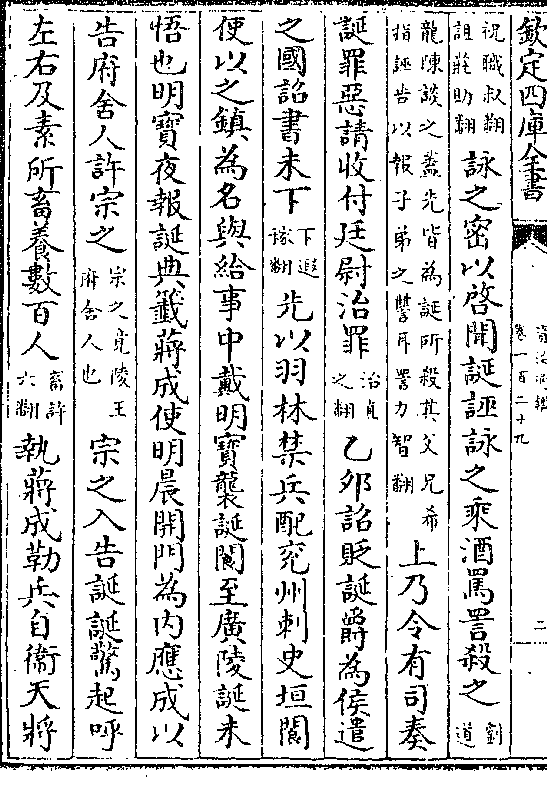 欽定四庫全書
資治通鑑
卷一百二十九
二
祝職叔翻
詛莊助翻
詠之密以啓聞誕誣詠之乘酒罵詈殺之
劉道
龍陳談之蓋先皆為誕所殺其父兄希
指誣告以報子弟之讐耳詈力智翻
上乃令有司奏
誕罪惡請收付廷尉治罪
治直
之翻
乙夘詔貶誕爵為侯遣
之國詔書未下
下遐
稼翻
先以羽林禁兵配兖州刺史垣閬
使以之鎮為名與給事中戴明寶襲誕閬至廣陵誕未
悟也明寶夜報誕典籤蔣成使明晨開門為内應成以
告府舍人許宗之
宗之竟陵王
府舍人也
宗之入告誕誕驚起呼
左右及素所畜養數百人
畜許
六翻
執蔣成勒兵自衞天將